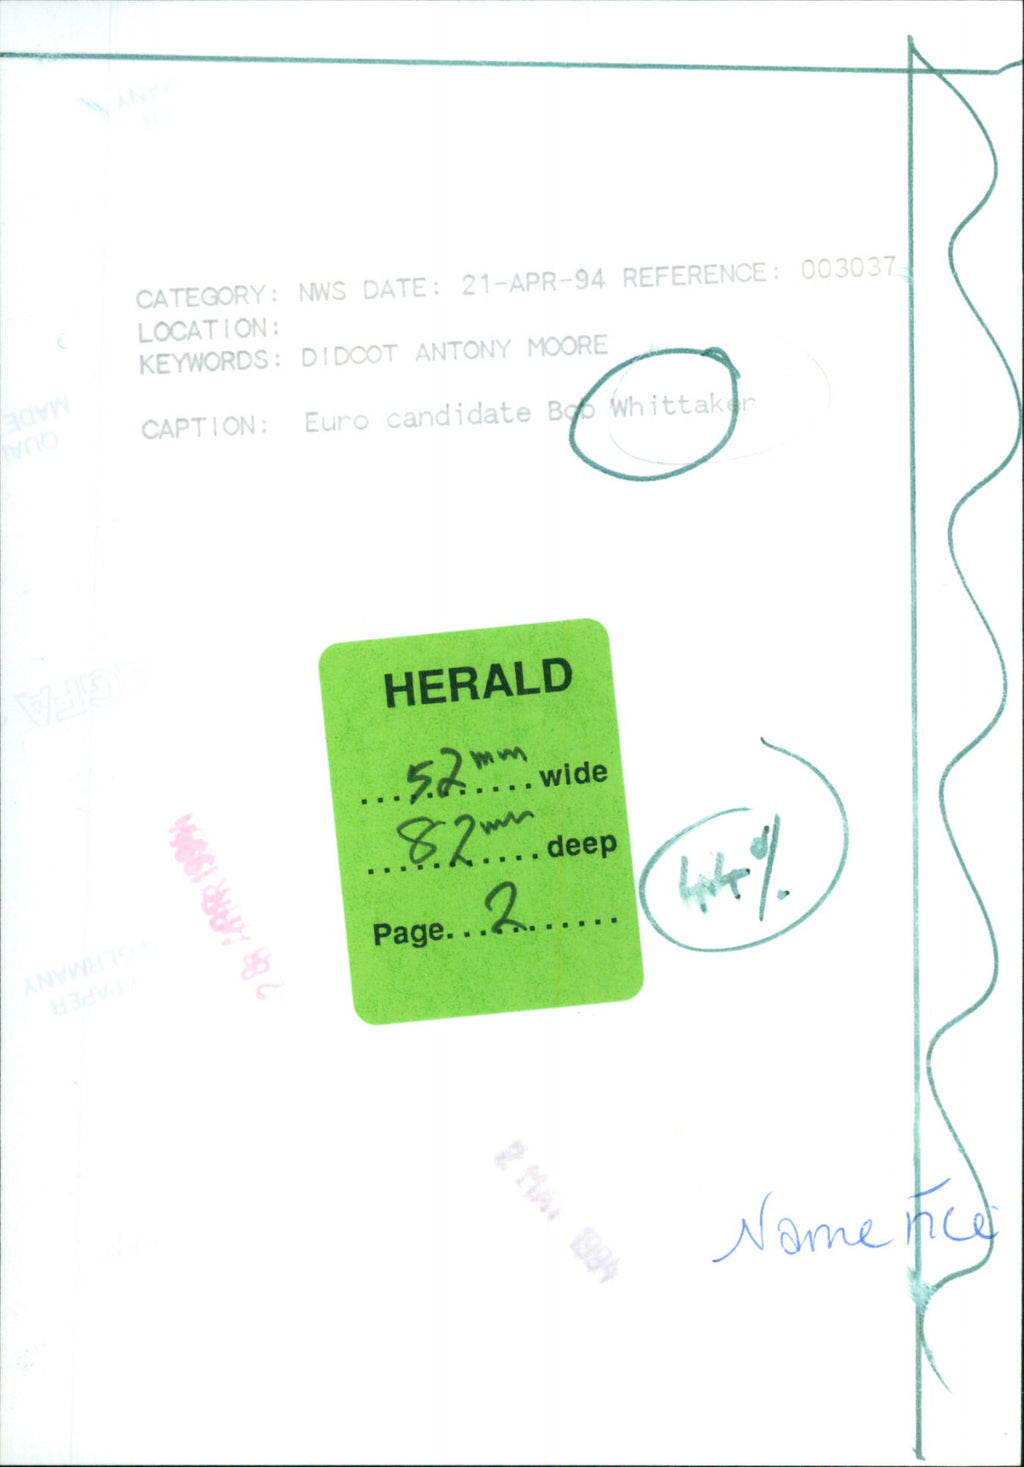 CATEGORY: NWS DATE: 21-APR-94 REFERENCE: 003037
LOCATION:
KEYWORDS: DIDCOT ANTONY MOORE
CAPTION: Euro candidate Bob Whittaker
MADE
HERALD
52mm wide
82mm deep
Page 2
44%
AGFA
GERMANY
PAPER
1994
Name File